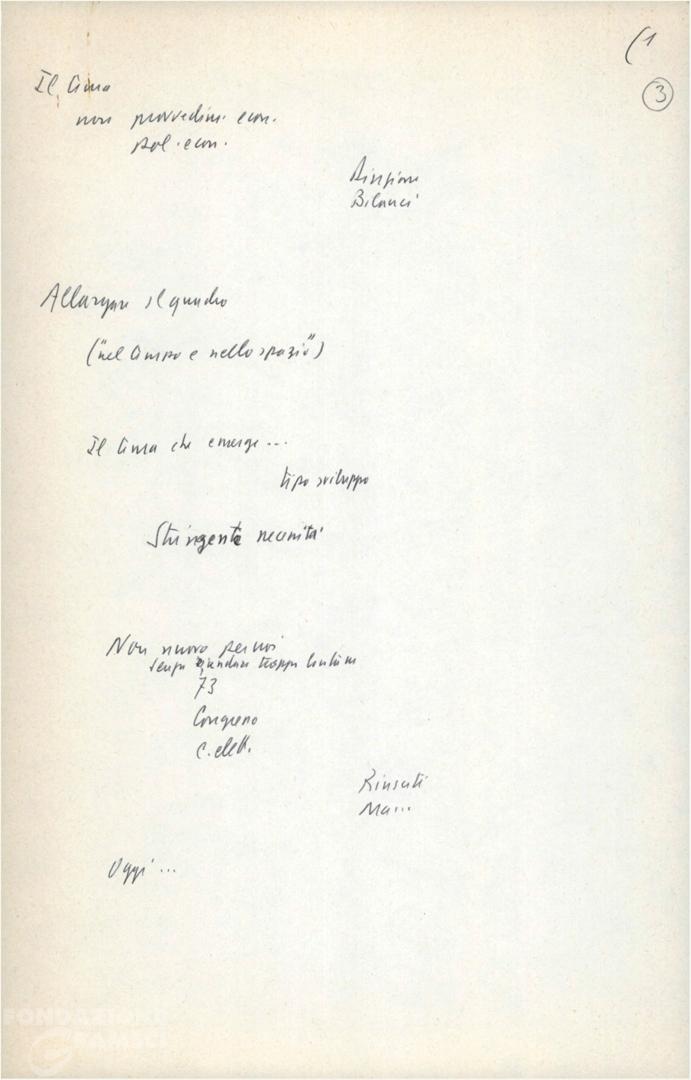 (1
3
Il tema
non provvedim. econ.
pol. econ.
Riunione
Bilanci
Allargare il quadro
("nel tempo e nello spazio")
Il tema che emerge...
tipo sviluppo
Stringente necessità
Non nuovo per noi
senza andare troppo lontano
73
Congresso
C. elett.
Riusciti
Ma...
Oggi...
FONDAZIONE
GRAMSCI